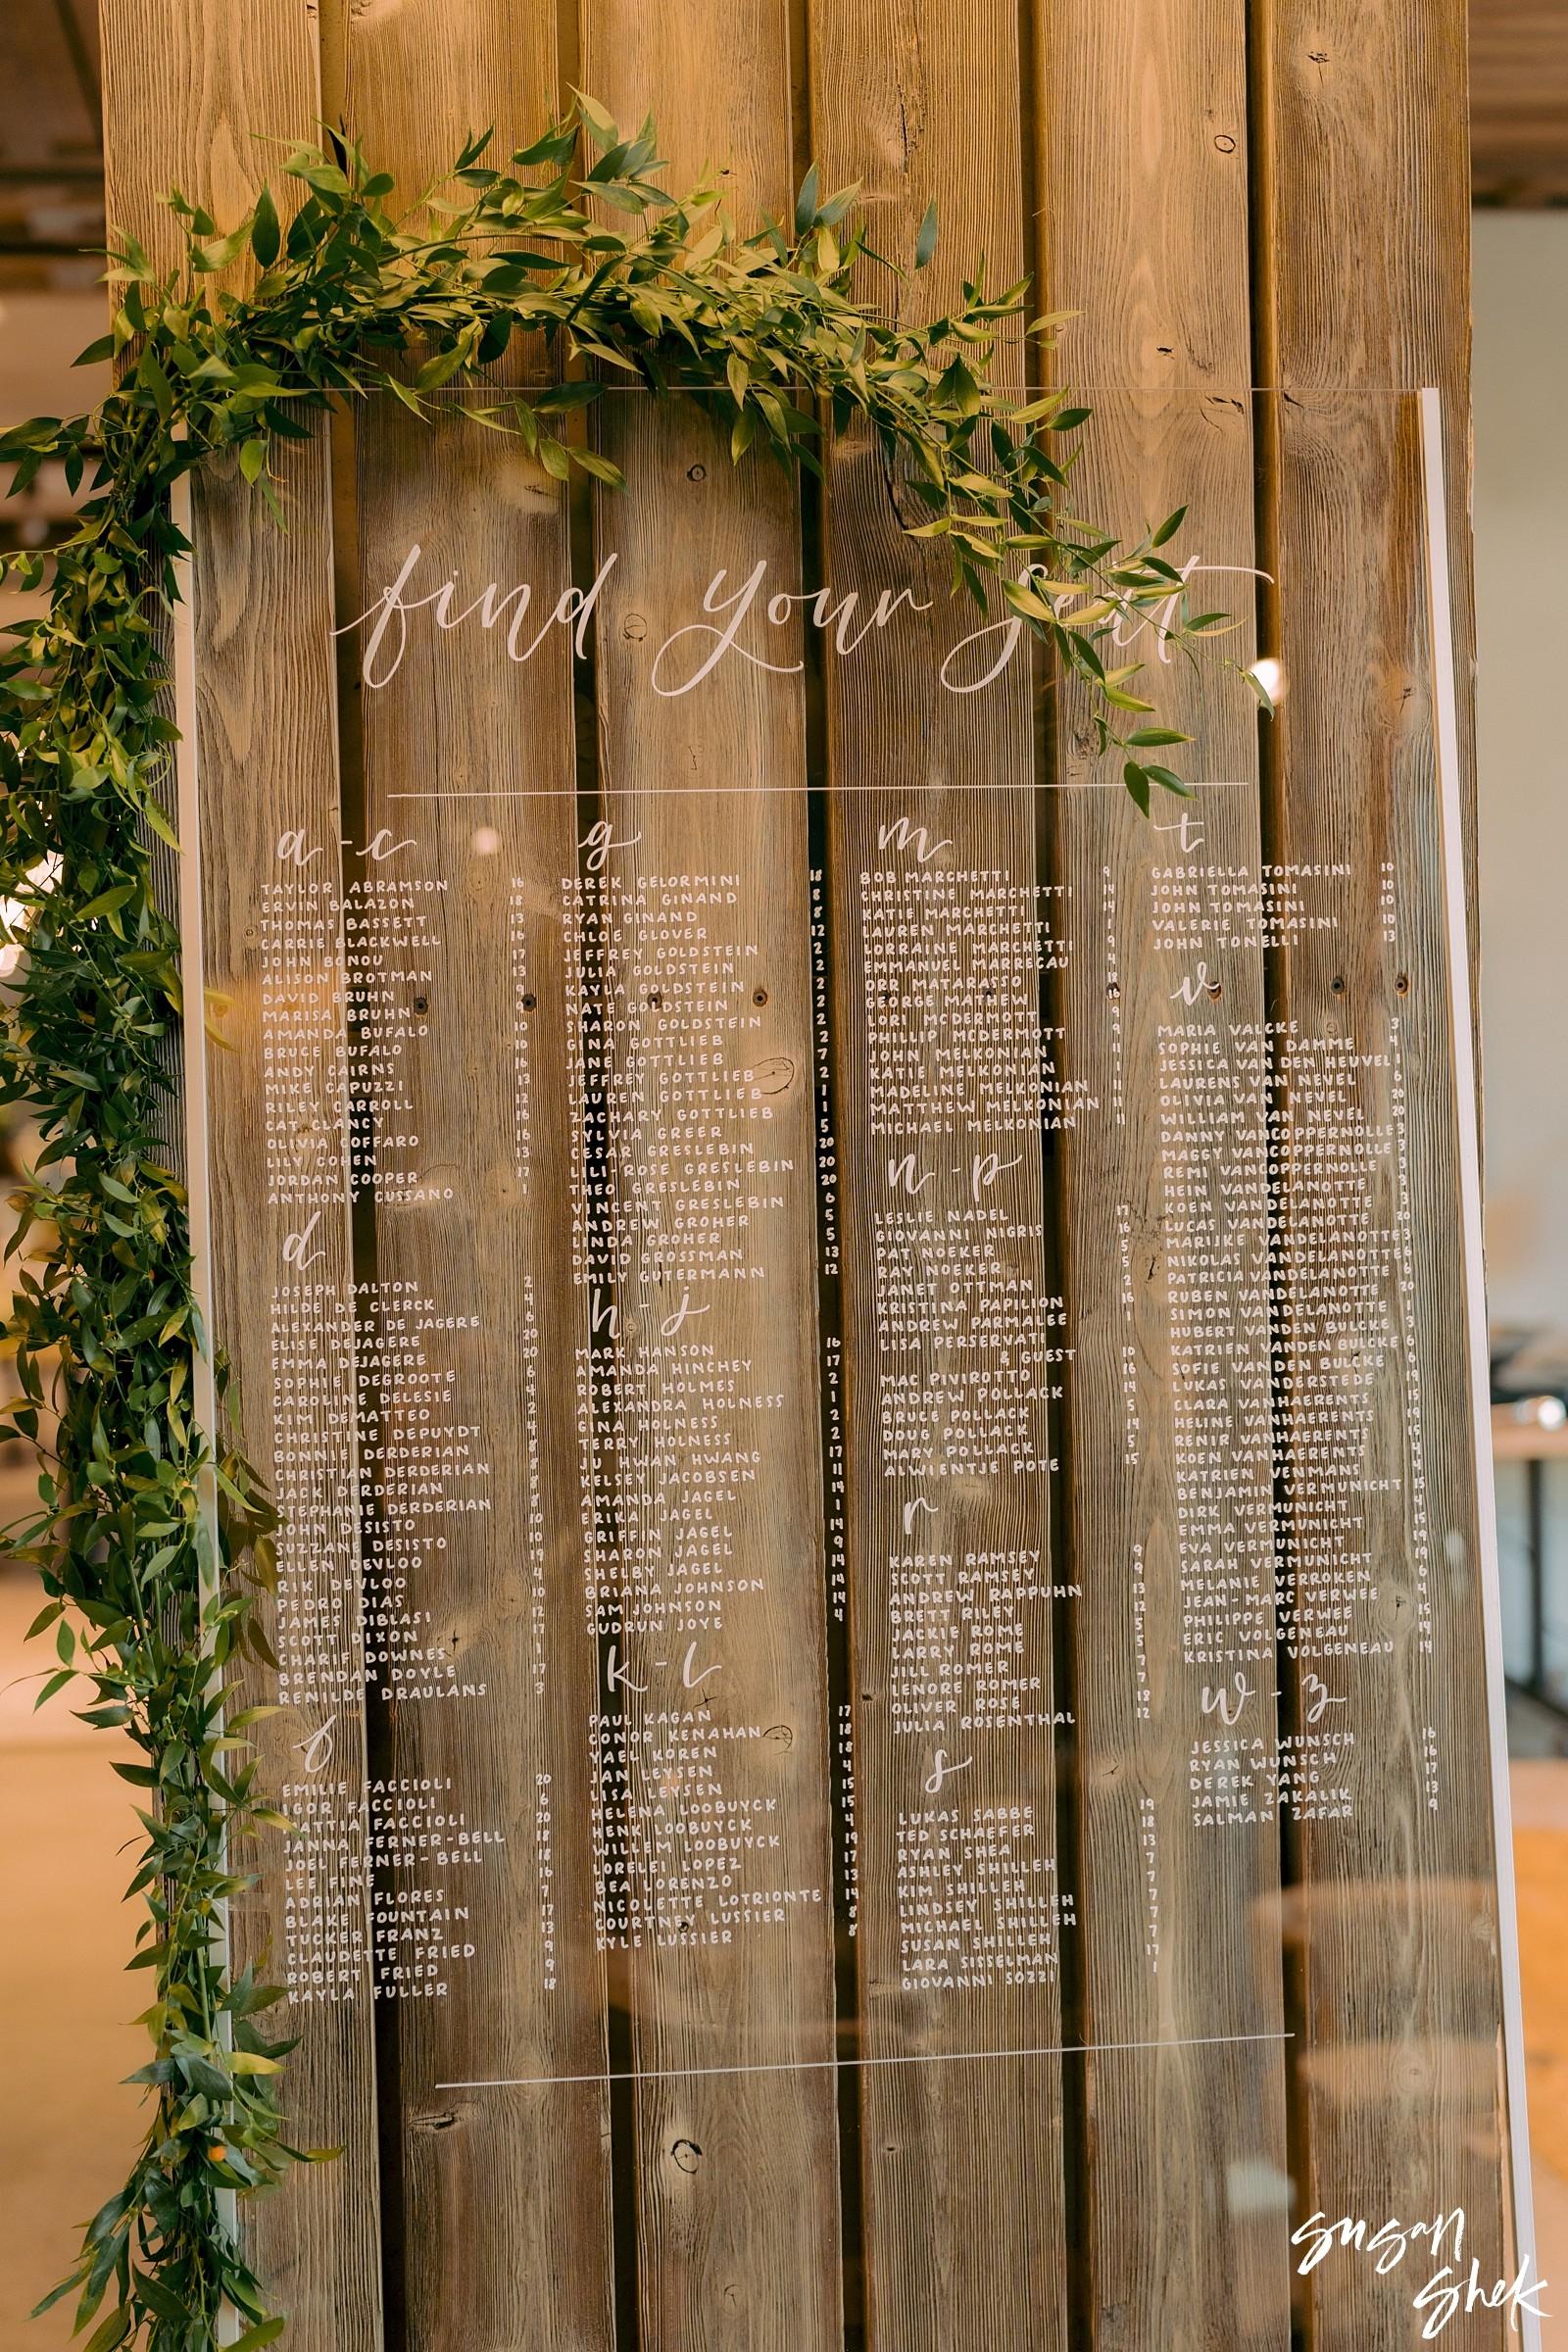 find your seat
a-c
TAYLOR ABRAMSON 16
ERVIN BALAZON 18
THOMAS BASSETT 13
CARRIE BLACKWELL 16
JOHN BONOU 17
ALISON BROTMAN 13
DAVID BRUHN 9
MARISA BRUHN 9
AMANDA BUFALO 10
BRUCE BUFALO 10
ANDY CAIRNS 16
MIKE CAPUZZI 13
RILEY CARROLL 12
CAT CLANCY
OLIVIA COFFARO 16
LILY COHEN 13
JORDAN COOPER 17
ANTHONY CUSSANO 1
d
JOSEPH DALTON 2
HILDE DE CLERCK 4
ALEXANDER DE JAGERE 6
ELISE DEJAGERE 20
EMMA DEJAGERE 20
SOPHIE DEGROOTE 6
CAROLINE DELESIE 4
KIM DEMATTEO 2
CHRISTINE DEPUYDT 4
BONNIE DERDERIAN 8
CHRISTIAN DERDERIAN 8
JACK DERDERIAN 8
STEPHANIE DERDERIAN 8
JOHN DESISTO 10
SUZZANE DESISTO 10
ELLEN DEVLOO 19
RIK DEVLOO 4
PEDRO DIAS 10
JAMES DIBLASI 12
SCOTT DIXON 17
CHARIF DOWNES 1
BRENDAN DOYLE 17
RENILDE DRAULANS 3
f
EMILIE FACCIOLI 20
IGOR FACCIOLI 6
MATTIA FACCIOLI 20
JANNA FERNER-BELL 18
JOEL FERNER-BELL 18
LEE FINE 16
ADRIAN FLORES 7
BLAKE FOUNTAIN 17
TUCKER FRANZ 13
CLAUDETTE FRIED 9
ROBERT FRIED 9
KAYLA FULLER 18
g
DEREK GELORMINI 18
CATRINA GINAND 8
RYAN GINAND 8
CHLOE GLOVER 12
JEFFREY GOLDSTEIN 2
JULIA GOLDSTEIN 2
KAYLA GOLDSTEIN 2
NATE GOLDSTEIN 2
SHARON GOLDSTEIN 2
GINA GOTTLIEB 2
JANE GOTTLIEB 7
JEFFREY GOTTLIEB 2
LAUREN GOTTLIEB 1
ZACHARY GOTTLIEB 1
SYLVIA GREER 5
CESAR GRESLEBIN 20
LILI-ROSE GRESLEBIN 20
THEO GRESLEBIN 20
VINCENT GRESLEBIN 6
ANDREW GROHER 5
LINDA GROHER 5
DAVID GROSSMAN 13
EMILY GUTERMANN 12
h-j
MARK HANSON 16
AMANDA HINCHEY 17
ROBERT HOLMES 2
ALEXANDRA HOLNESS 1
GINA HOLNESS 2
TERRY HOLNESS 2
JU HWAN HWANG 17
KELSEY JACOBSEN 11
AMANDA JAGEL 14
ERIKA JAGEL 1
GRIFFIN JAGEL 14
SHARON JAGEL 9
SHELBY JAGEL 14
BRIANA JOHNSON 14
SAM JOHNSON 14
GUDRUN JOYE 4
k-l
PAUL KAGAN 17
CONOR KENAHAN 18
YAEL KOREN 18
JAN LEYSEN 4
LISA LEYSEN 15
HELENA LOOBUYCK 15
HENK LOOBUYCK 4
WILLEM LOOBUYCK 19
LORELEI LOPEZ 17
BEA LORENZO 13
NICOLETTE LOTRIONTE 14
COURTNEY LUSSIER 8
KYLE LUSSIER 8
m
BOB MARCHETTI 9
CHRISTINE MARCHETTI
KATIE MARCHETTI
LAUREN MARCHETTI
LORRAINE MARCHETTI
EMMANUEL MARRECAU
ORR MATARASSO
GEORGE MATHEW
LORI MCDERMOTT
PHILLIP MCDERMOTT
JOHN MELKONIAN
KATIE MELKONIAN
MADELINE MELKONIAN
MATTHEW MELKONIAN
MICHAEL MELKONIAN
n-p
LESLIE NADEL 17
GIOVANNI NIGRIS 16
PAT NOEKER 5
RAY NOEKER 5
JANET OTTMAN 2
KRISTINA PAPILION 16
ANDREW PARMALEE 1
LISA PERSERVATI
& GUEST 10
MAC PIVIROTTO 16
ANDREW POLLACK 14
BRUCE POLLACK 5
DOUG POLLACK 14
MARY POLLACK 5
ALWIENTJE POTE 15
r
KAREN RAMSEY 9
SCOTT RAMSEY 9
ANDREW RAPPUHN 13
BRETT RILEY 12
JACKIE ROME 5
LARRY ROME 5
JILL ROMER 7
LENORE ROMER 7
OLIVER ROSE 18
JULIA ROSENTHAL 12
s
LUKAS SABBE 19
TED SCHAEFER 18
RYAN SHEA 13
ASHLEY SHILLEH 7
KIM SHILLEH 7
LINDSEY SHILLEH 7
MICHAEL SHILLEH 7
SUSAN SHILLEH 7
LARA SISSELMAN 17
GIOVANNI SOZZI 1
t
GABRIELLA TOMASINI 10
JOHN TOMASINI 10
JOHN TOMASINI 10
VALERIE TOMASINI 10
JOHN TONELLI 13
v
MARIA VALCKE 3
SOPHIE VAN DAMME 4
JESSICA VAN DEN HEUVEL 1
LAURENS VAN NEVEL 6
OLIVIA VAN NEVEL 20
WILLIAM VAN NEVEL 20
DANNY VANCOPPERNOLLE 3
MAGGY VANCOPPERNOLLE 3
REMI VANCOPPERNOLLE 3
HEIN VANDELANOTTE 3
KOEN VANDELANOTTE 3
LUCAS VANDELANOTTE 20
MARIJKE VANDELANOTTE 3
NIKOLAS VANDELANOTTE 6
PATRICIA VANDELANOTTE 6
RUBEN VANDELANOTTE 20
SIMON VANDELANOTTE 1
HUBERT VANDEN BULCKE 3
KATRIEN VANDEN BULCKE 6
SOFIE VANDEN BULCKE 6
LUKAS VANDERSTEDE 19
CLARA VANHAERENTS 15
HELINE VANHAERENTS 19
RENIR VANHAERENTS 15
KOEN VANHAERENTS 4
KATRIEN VENMANS 4
BENJAMIN VERMUNICHT 15
DIRK VERMUNICHT 4
EMMA VERMUNICHT 15
EVA VERMUNICHT
SARAH VERMUNICHT 19
MELANIE VERROKEN 6
JEAN-MARC VERWEE 4
PHILIPPE VERWEE 15
ERIC VOLGENEAU 14
KRISTINA VOLGENEAU 14
w-z
JESSICA WUNSCH 16
RYAN WUNSCH 16
DEREK YANG 17
JAMIE ZAKALIK 13
SALMAN ZAFAR 9
susan
shek